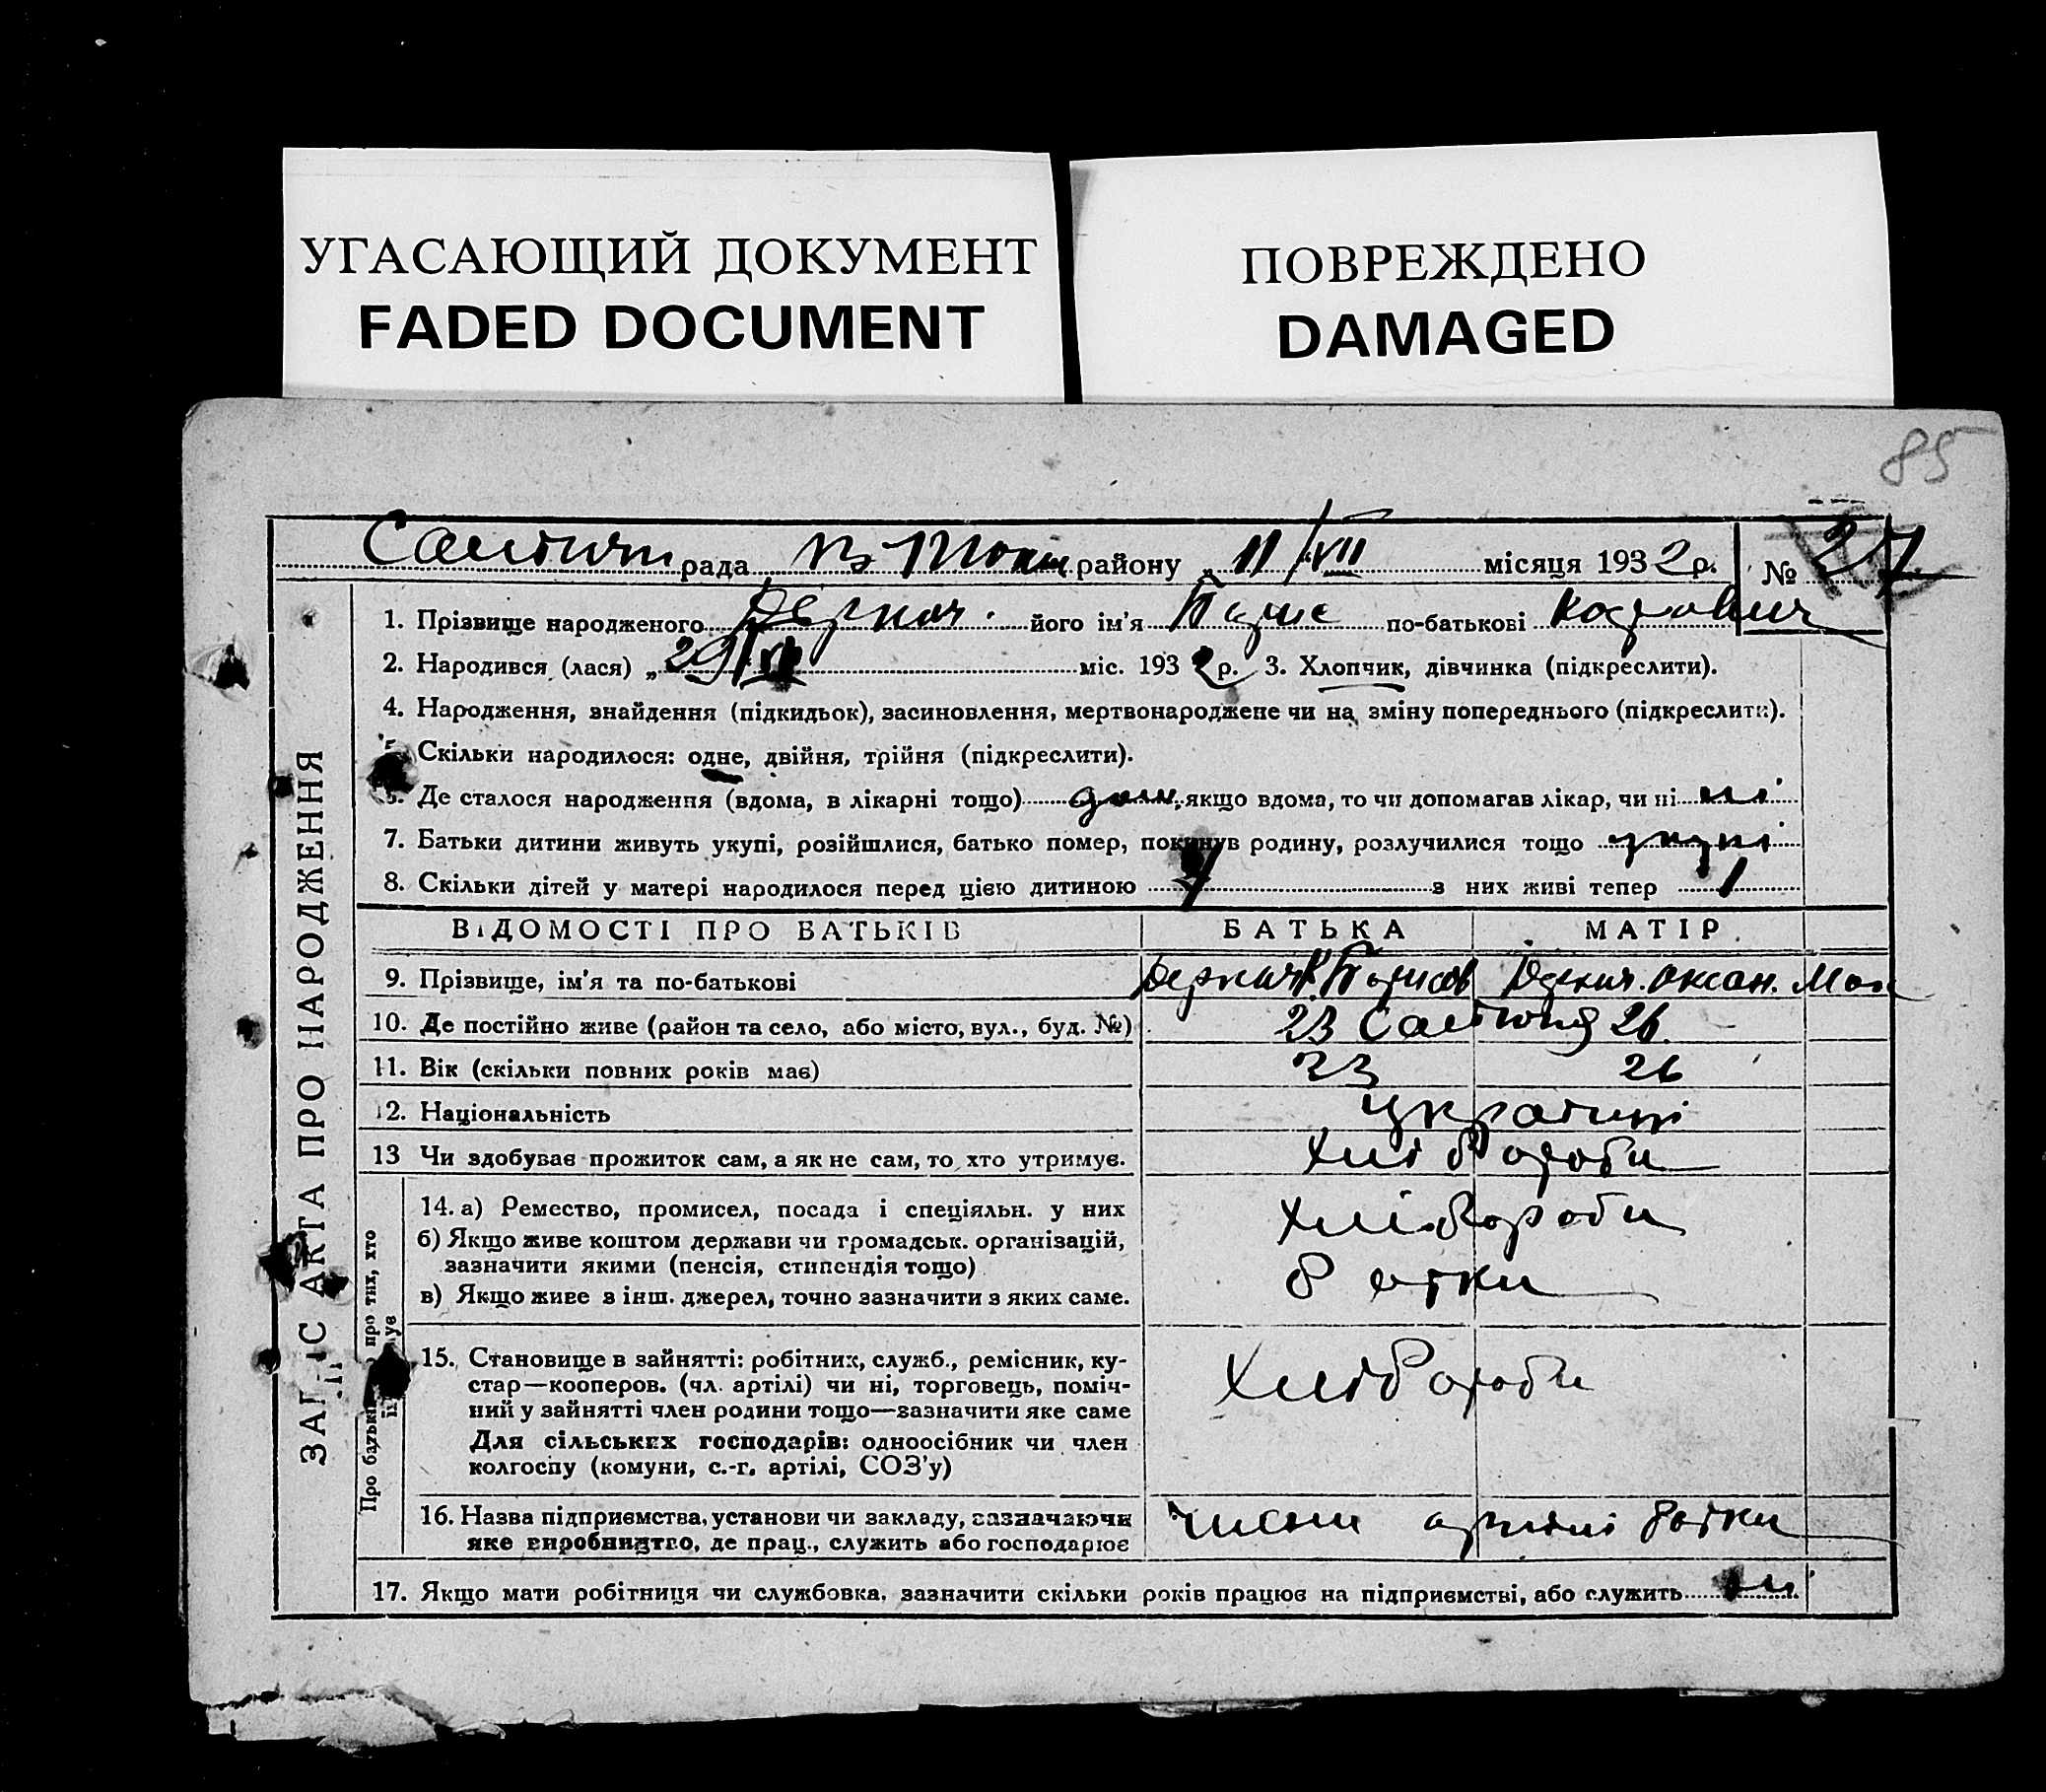 УГАСАЮЩИЙ ДОКУМЕНТ
FADED DOCUMENT
ПОВРЕЖДЕНО
DAMAGED
85
рада району „ 11/VII місяця 1932 р. № 27
1. Прізвище народженого Деркач його ім'я по-батькові
2. Народився (лася) „ 29 міс. 1932 р. 3. Хлопчик, дівчинка (підкреслити).
4. Народження, знайдення (підкидьок), засиновлення, мертвонароджене чи на зміну попереднього (підкреслити).
Скільки народилося: одне, двійня, трійня (підкреслити).
Де сталося народження (вдома, в лікарні тощо) дома, якщо вдома, то чи допомагав лікар, чи ні ні
7. Батьки дитини живуть укупі, розійшлися, батько помер, покинув родину, розлучилися тощо укупі
8. Скільки дітей у матері народилося перед цією дитиною з них живі тепер 1
ВІДОМОСТІ ПРО БАТЬКІВ БАТЬКА МАТІР
9. Прізвище, ім'я та по-батькові Деркач Борисов Деркач Оксан.
10. Де постійно живе (район та село, або місто, вул., буд. №)
11. Вік (скільки повних років має) 23 26
12. Національність українці
13 Чи здобуває прожиток сам, а як не сам, то хто утримує. Хліборобы
14. а) Ремество, промисел, посада і спеціяльн. у них Хлібороби
б) Якщо живе коштом держави чи громадськ. організацій,
зазначити якими (пенсія, стипендія тощо)
в) Якщо живе з інш. джерел, точно зазначити з яких саме.
15. Становище в зайнятті: робітник, служб., ремісник, ку-
стар—кооперов. (чл. артілі) чи ні, торговець, поміч-
ний у зайнятті член родини тощо—зазначити яке саме
Хлібороби
Для сільських господарів: одноосібник чи член
колгоспу (комуни, с.-г. артілі, СОЗ'у)
16. Назва підприємства, установи чи закладу, зазначаючи
яке виробництво, де прац., служить або господарює
члени артілі
17. Якщо мати робітниця чи службовка, зазначити скільки років працює на підприємстві, або служить
ЗАПИС АКТА ПРО НАРОДЖЕННЯ
Про батьків про тих, хто